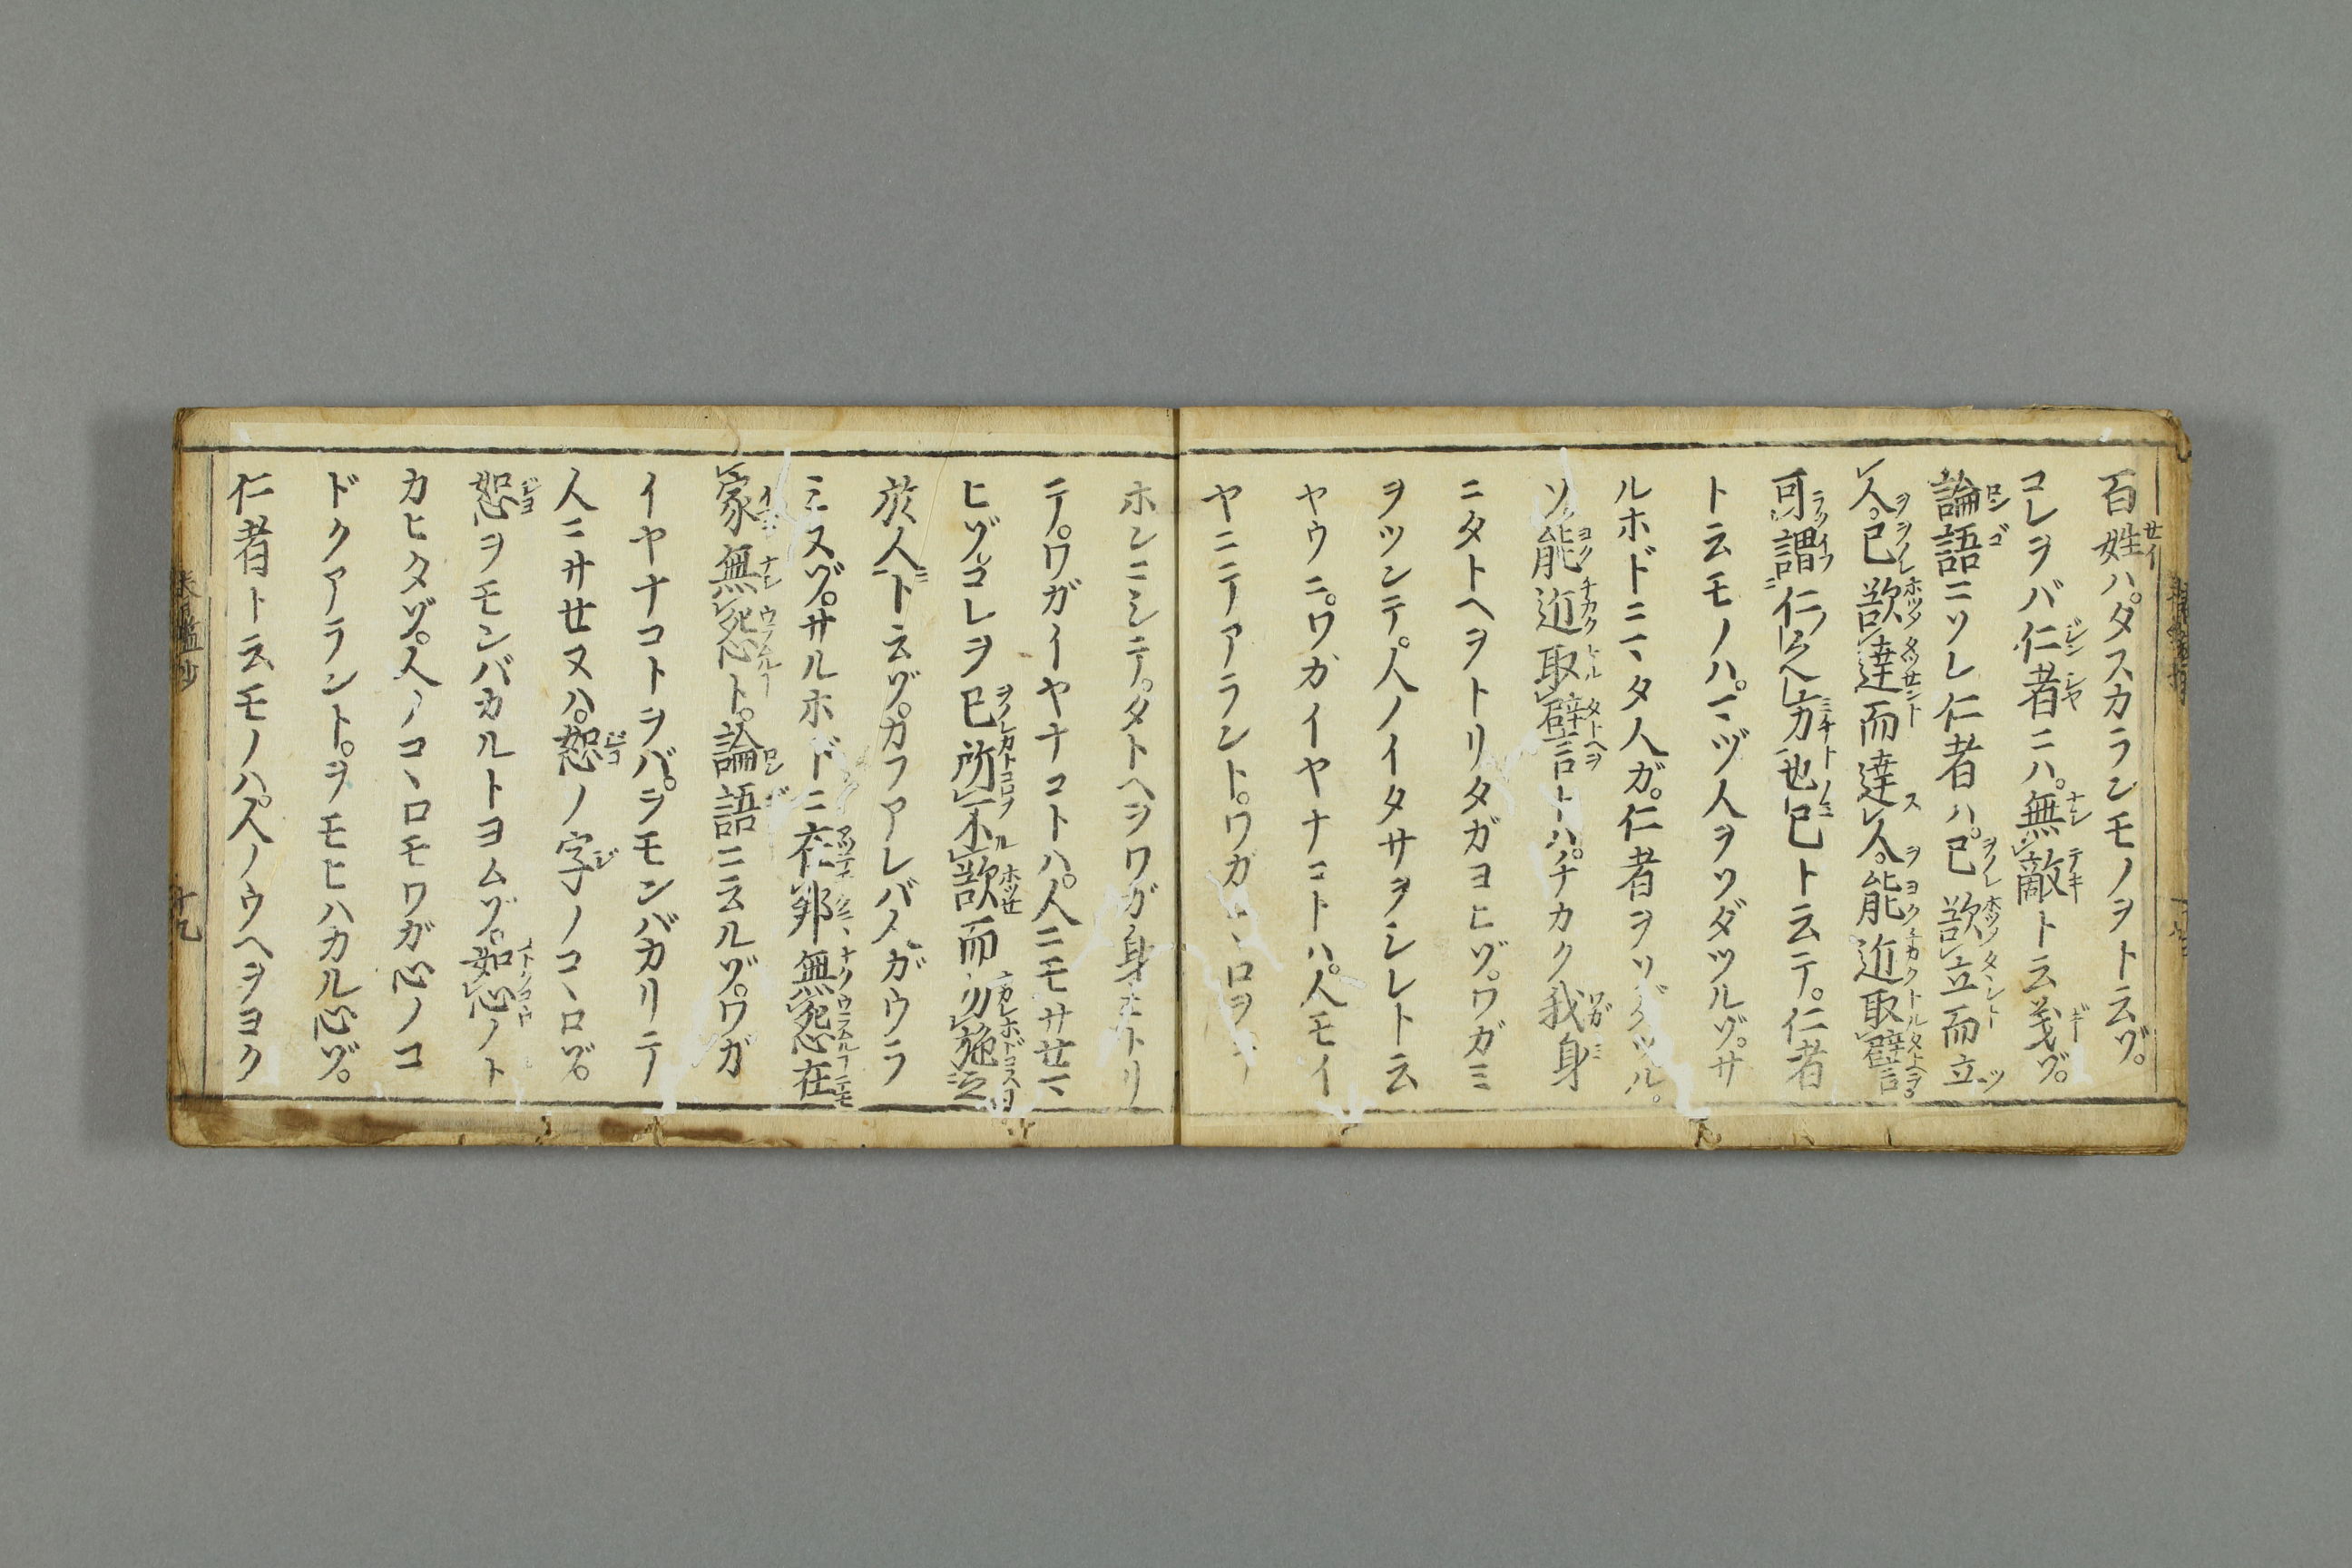 百姓ハ。タスカランモノヲト云ヅ。
コレヲバ仁者ニハ。無敵ト云義ヅ。
論語ニソレ仁者ハ。己欲立而立
人。己欲達而達人。能近取譬
可謂仁之方也已ト云テ。仁者
ト云モノハ。マヅ人ヲソダツルヅ。サ
ルホドニマタ人ガ。仁者ヲソダツル。
ソ能近取譬トハ。チカク我身
ニタトヘヲトリタガヨヒヅ。ワガミ
ヲツンテ。人ノイタサヲシレト云
ヤウニ。ワガイヤナコトハ。人モイ
ヤニテアラント。ワガコヽロヲ
ホンニシテ。タトヘヲワガ身ニトリ
テ。ワガイヤナコトハ。人ニモサセマ
ヒヅ。コレヲ己所不欲而勿施之
於人ト云ヅ。カフアレバ人ガウラ
ミヌヅ。サルホドニ在邦無怨在
家無怨ト。論語ニ云ルヅ。ワガ
イヤナコトヲバ。ヲモンバカリテ
人ニサセヌハ。恕ノ字ノコヽロヅ。
恕ヲモンバカルトヨムヅ。如心ノト
カヒタヅ。人ノコヽロモワガ心ノコ
ドクアラント。ヲモヒハカル心ヅ。
仁者ト云モノハ。人ノウヘヲヨク